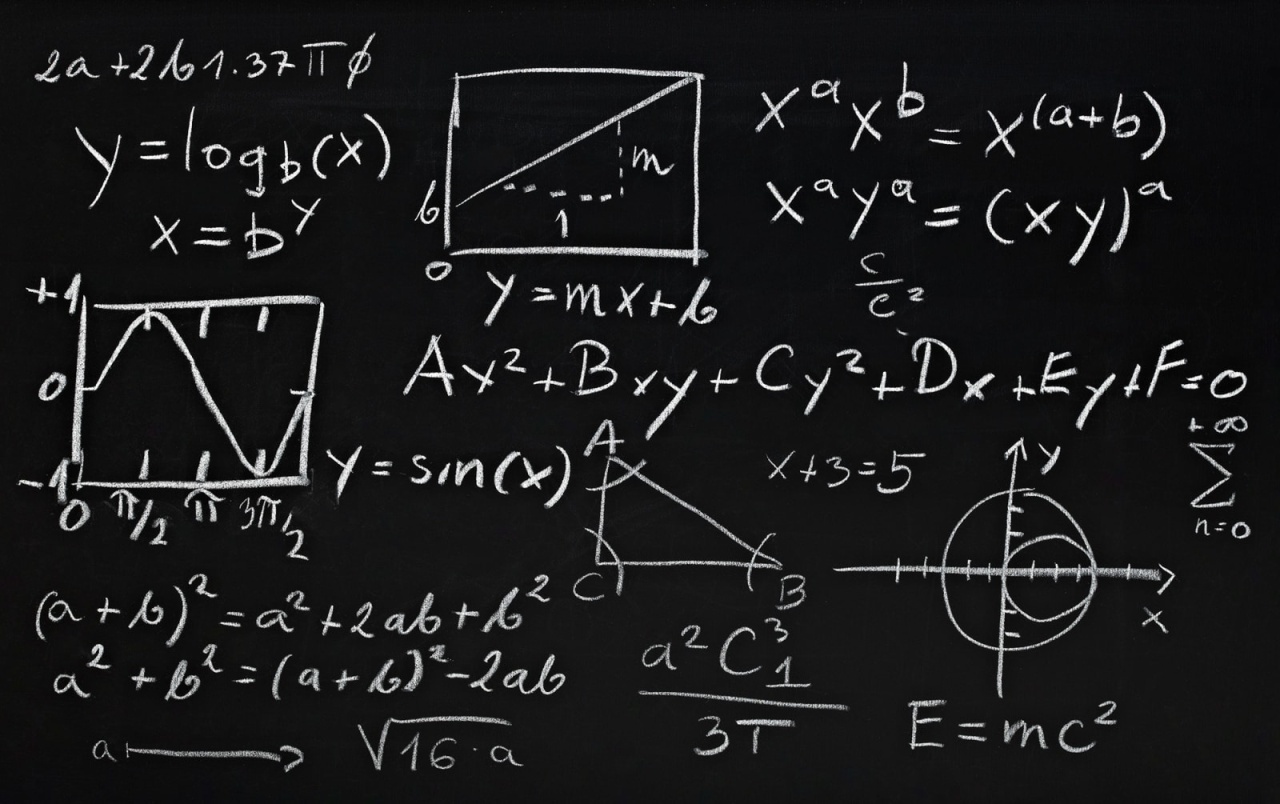 2a+2b1.37πφ
y=log_b(x)
x=b^y
b
m
1
0
y=mx+b
x^a x^b = x^(a+b)
x^a y^a = (xy)^a
c/c²
+1
0
-1
0 π/2 π 3π/2
y=sin(x)
Ax²+Bxy+Cy²+Dx+Ey+F=0
A
C
B
x+3=5
y
x
+∞
∑
n=0
(a+b)²=a²+2ab+b²
a²+b²=(a+b)²-2ab
a ⟼
√16·a
a²C³₁
3T
E=mc²